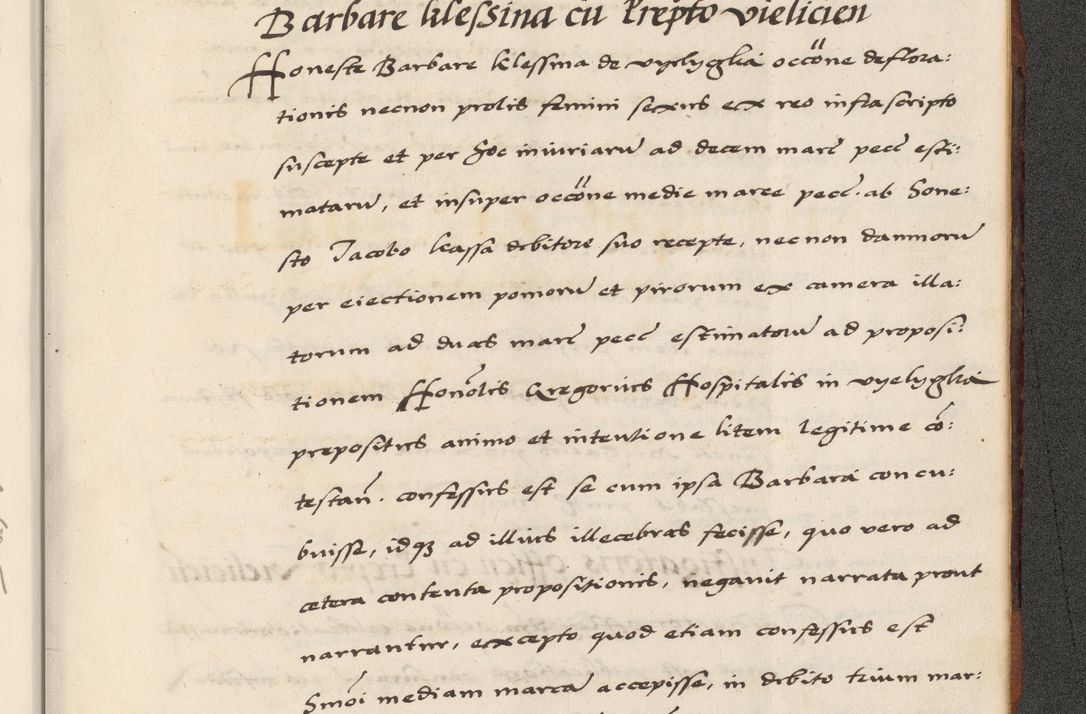 Barbare klessina cū Prepto vielicien
Honeste Barbare klessina de vyelyglią occōne deflora:
tionis necnon prolis feminini sexus ex reo infrascripto
suscepte et per hoc iniuriarū ad decem marc pecc esti:
matarū, et insuper occōne medie marce pecc. ab hone:
sto Jacobo kassa debitore suo recepte, necnon damnorū
per eiectionem pomorū et pirorum ex camera illa:
torum ad duas marc pecc estimatorū ad proposi:
tionem Honōlis Gregorius Hospitalis in vyelyglią
prepositus animo et intentione litem legitime cō:
testan̄. confessus est se cum ipsa Barbara concu:
buisse, idqȝ ad illius illecebras fecisse, quo vero ad
cetera contenta propositionis, negavit narrata prout
narrantur, excepto quod etiam confessus est
hmōi mediam marcā accepisse, in debito trium mar: